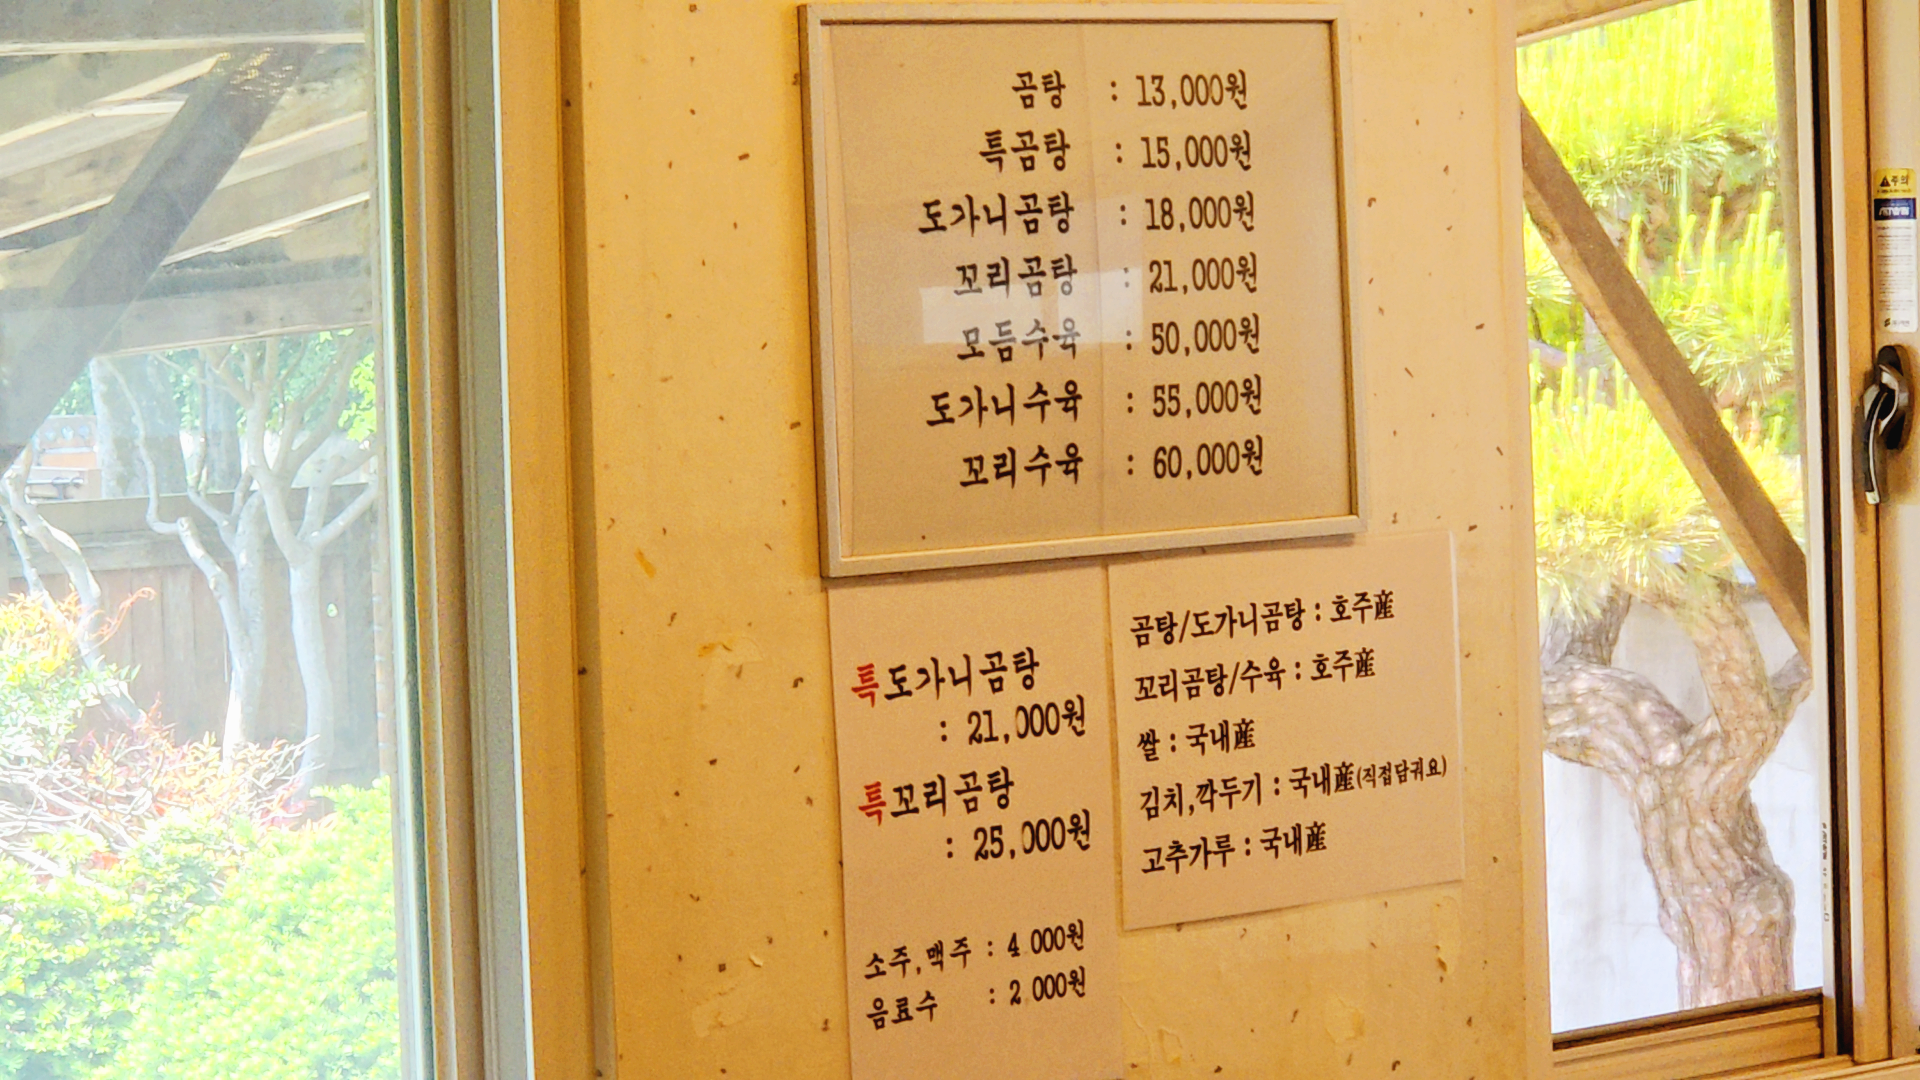 곰탕 : 13,000원
특곰탕 : 15,000원
도가니곰탕 : 18,000원
꼬리곰탕 : 21,000원
모듬수육 : 50,000원
도가니수육 : 55,000원
꼬리수육 : 60,000원
특도가니곰탕
: 21,000원
특꼬리곰탕
: 25,000원
소주,맥주 : 4 000원
음료수 : 2 000원
곰탕/도가니곰탕 : 호주産
꼬리곰탕/수육 : 호주産
쌀 : 국내産
김치,깍두기 : 국내産(직접담궈요)
고추가루 : 국내産
주의